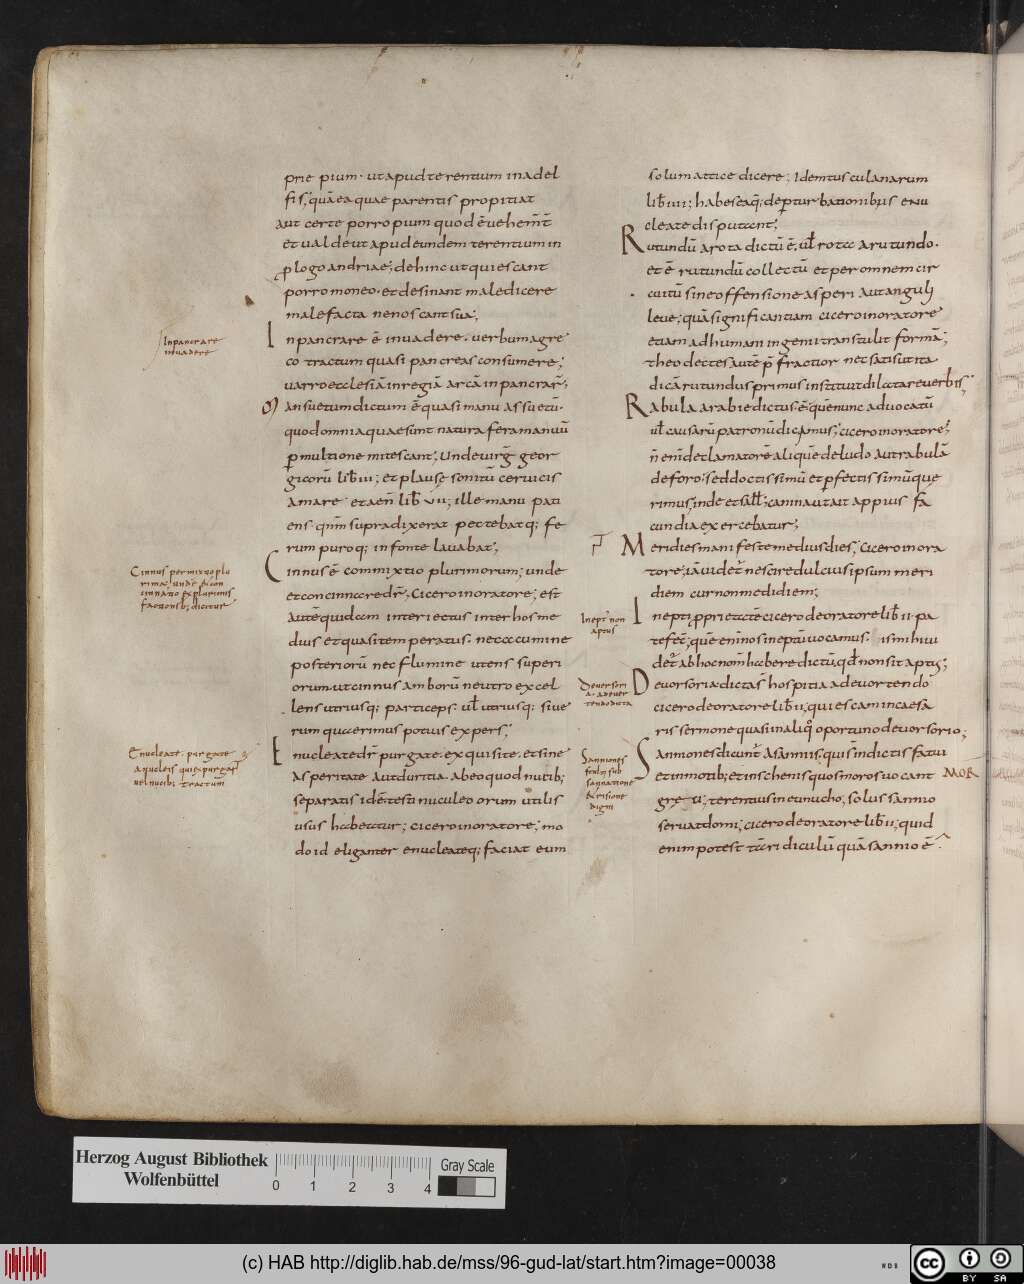 prie pium· ut apud terentium in adel
fis; quā ea quae parentis propitiat
aut certe porro pium quod ē uehem̄t̄
et ualde ut apud eundem terentium in
plogo andriae; dehinc ut quiescant
porro moneo· et desinant maledicere
malefacta ne noscant sua;
Inpancrare ē inuadere· uerbum agre
co tractum quasi pancreas consumere;
uarro et clesiā in regiā arcā inpancrar̄;
Mansuetum dictum ē quasi manu assuetū·
quod omnia quae sunt natura fera manuū
pmultione mitescant; Unde uirḡ geor
gicorū lib̄ iii; et plause sonitū ceruicis
amare· et aeñ lib̄ vii; ille manu pati
ens· qm̄ supra dixerat pectebatq; fe
rum puroq; in fonte lauabat;
Cinnus ē commixtio plurimorum; unde
et concinnare dr̄; Cicero in oratore; est
autē quidam interiectus inter hos me
dius et quasi temperatus· nec acumine
posteriorū nec flumine utens superi
orum· ut cinnus amborū neutro excel
lens utriusq; particeps· ul̄ utriusq; siue
rum quaerimus potius expers;
Enucleate dr̄ purgate· exquisite· et sine
asperitate aut duritia· Ab eo quod nucib;
separatis id ē testi nucule orum utilis
usus habeatur; cicero in oratore; mo
do id eliganter enucleateq; faciat eum
Inpancrare
inuadere
Cinnus permixtio plu
rimar̄ unde & con
cinnatio ex plurimis
factionsb; dicitur
Enucleate· purgate
a nucleis quia purgat̄
uel nucib; tractum
solum attice dicere; Idem tusculanarum
lib̄ iiii; habes eaq; de pturbationibus enu
cleate disputant;
Rutundū a rota dictū ē; ul̄ rota a rutundo·
et ē rutundū collectū et per omnem cir
cuitū sine offensione asperi aut anguli
leue; quā significantiam cicero in oratore
etiam ad humani ingenii transtulit formā;
theodectes autē p̄fractior nec satis ut ita
dicā rutundus primus instituit dilatare uerbis;
Rabula a rabie dictus· ē· quē nunc aduocatū
ul̄ causarū patronū dicimus; cicero in oratore;
n̄ enī declamatorē aliquē de ludo aut rabulā
de foro; sed doctissimū et pfectissimū que
rimus; inde et sall̄; canina ut ait appius fa
cundia exercebatur;
Meridies manifeste medius dies; Cicero in ora
tore; iā uidet̄ nescire dulcius ipsum meri
diem cur non medidiem;
Inepti pprietatē cicero de oratore lib̄ ii· pa
tefec̄; quē enī nos ineptū uocamus· is mihi ui
det̄ ab hoc nom̄ habere dictū; qd̄ non sit aptus;
Deuorsoria dicta s̄ hospitia a deuortendo
cicero de oratore lib̄ ii; qui es cam in caesa
ris sermone quasi in aliquo oportuno deuorsorio;
Sanniones dicunt̄ a sannis; qui s̄ in dictis fatui
et in motib; et in schenis quos moros uocant
greci; terentius in eunucho; solus sannio
seruat domi; cicero de oratore lib̄ ii; quid
enim potest tā ridiculū quā sannio ē
Inept' non
aptus
Deuersori
a· a deuer
tendo dicta
Sanniones
sannatione
& risione
digni
MOR
Herzog August Bibliothek
Wolfenbüttel
0 1 2 3 4
Gray Scale
(c) HAB http://diglib.hab.de/mss/96-gud-lat/start.htm?image=00038
WDB
cc BY SA